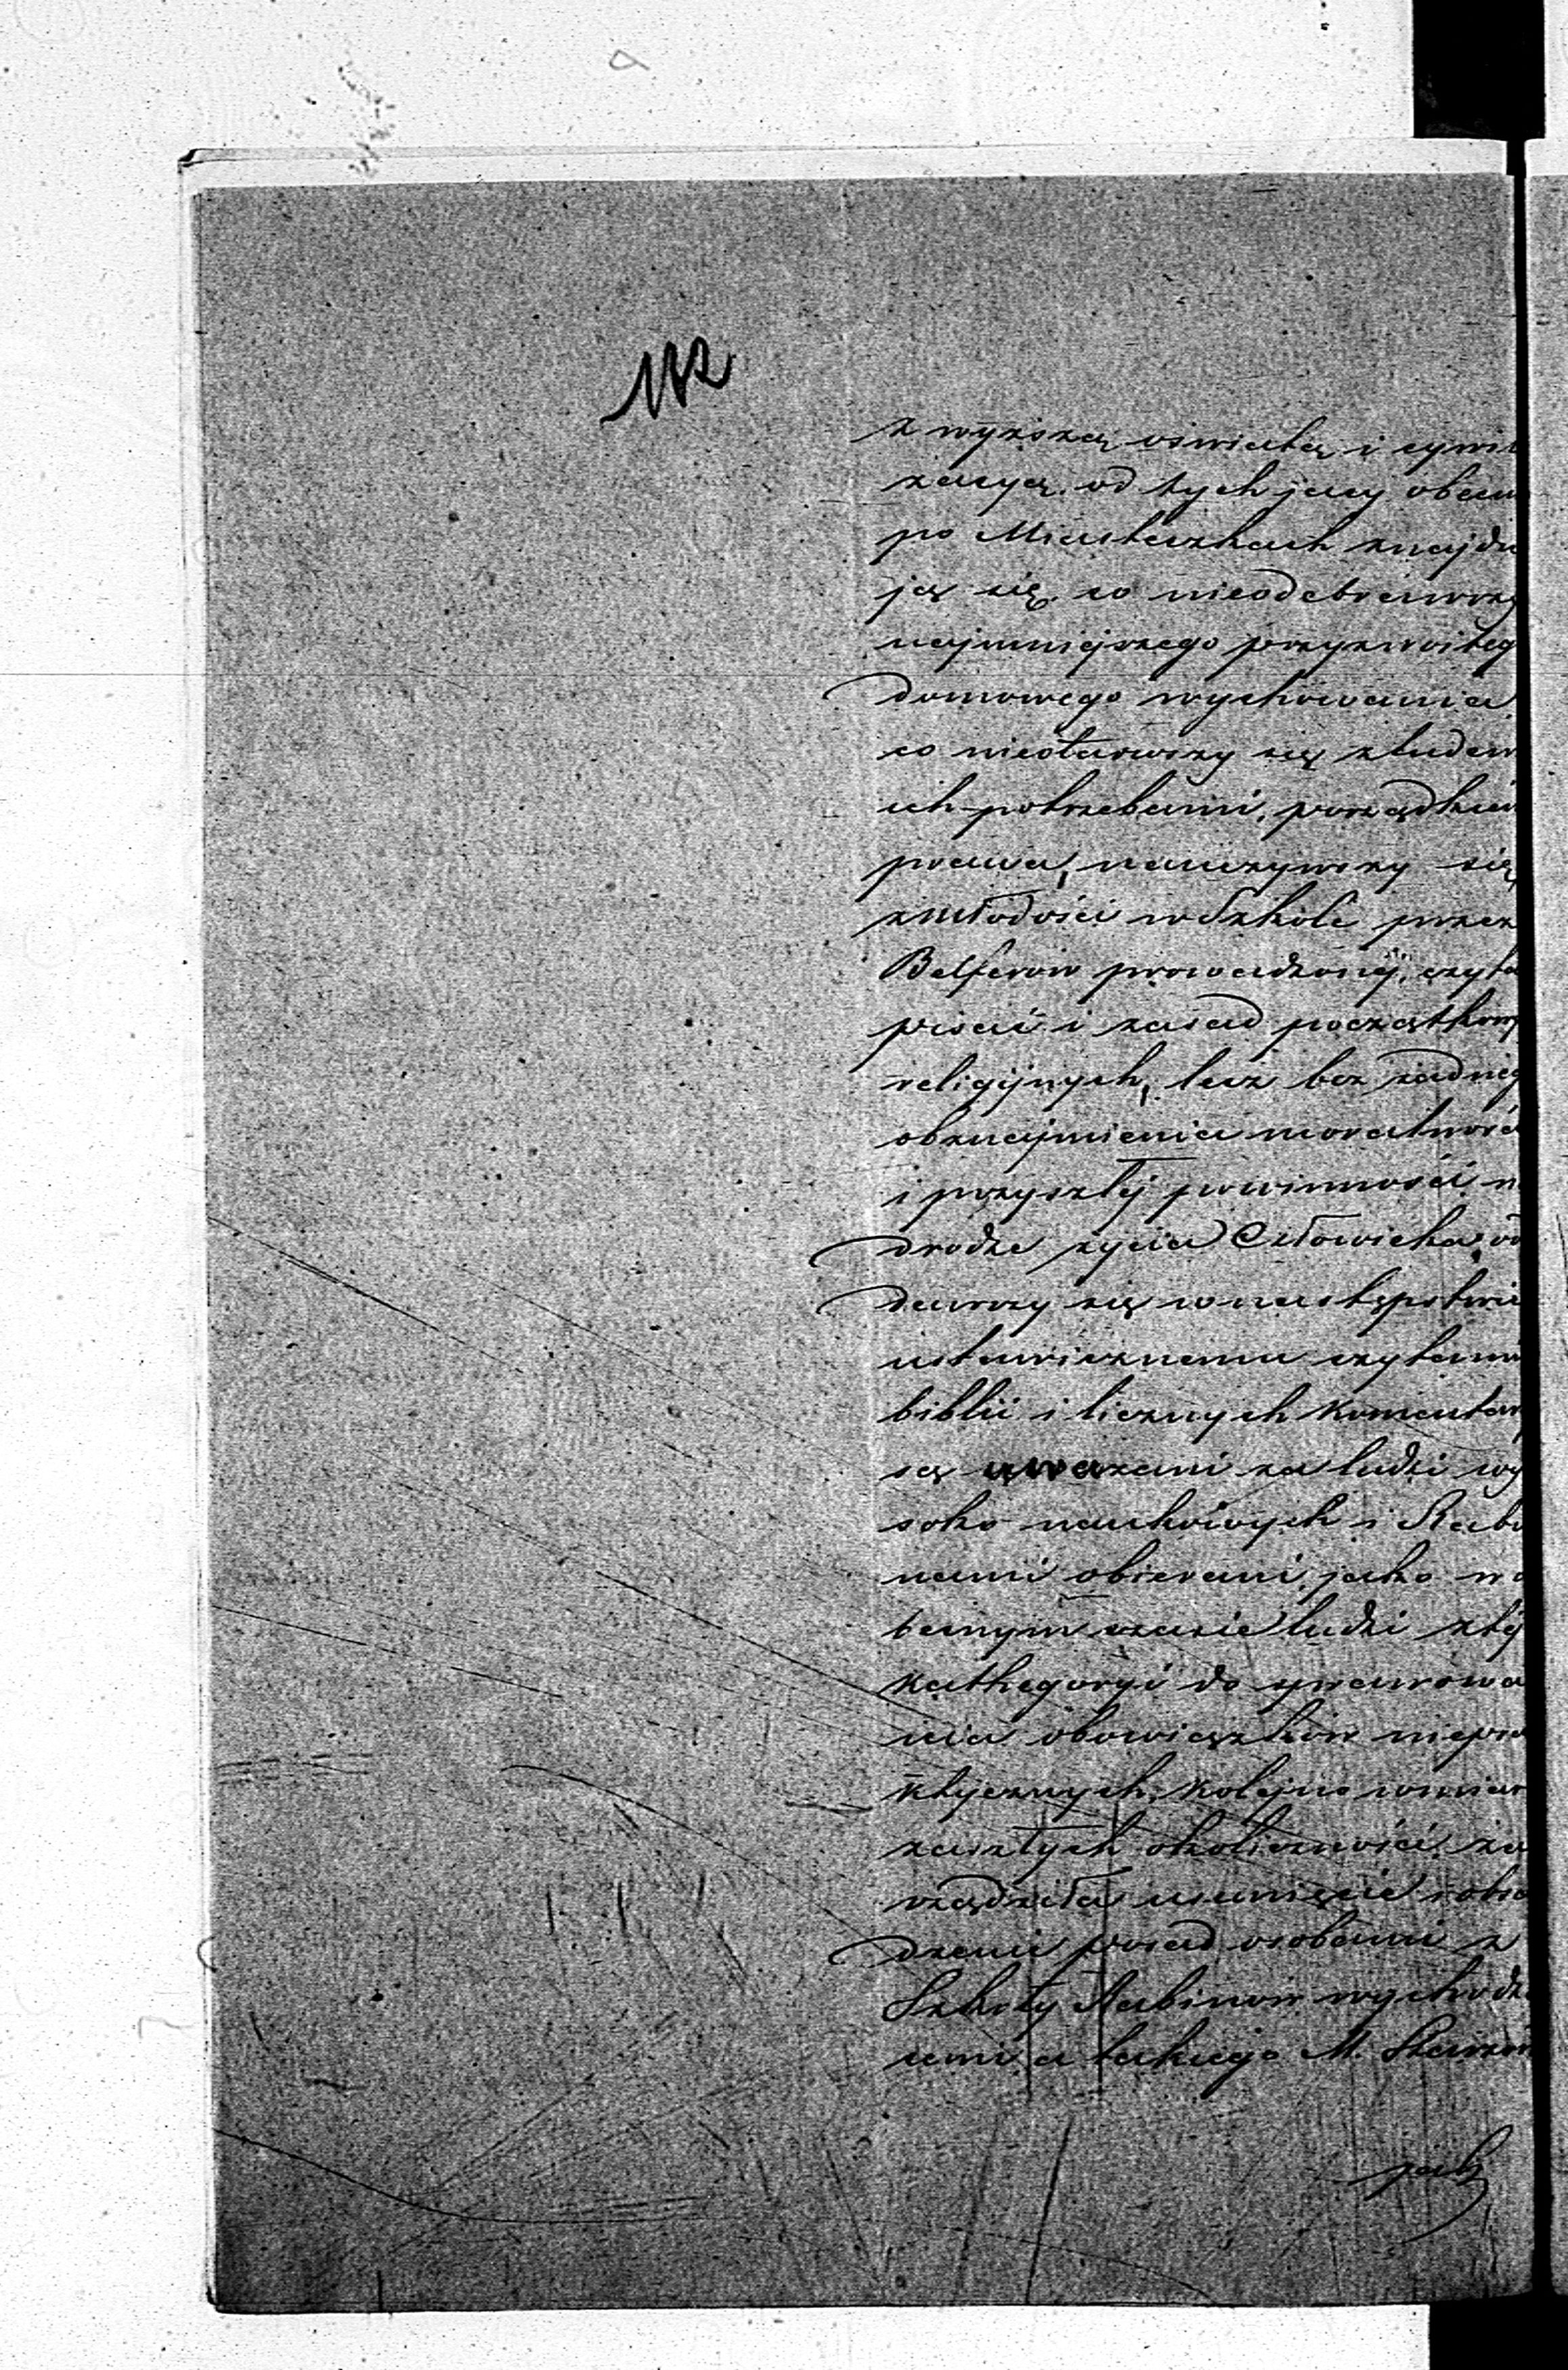 z wyższą oswiatą i cywi
zacyą od tych jacy obecn
po Miasteczkach znajdu
ją się. co nieodebrawszy
najmniejszego przyzwoiteg
domowego wychowania
co nieotarwszy się z ludem
ich potrzebami, porządkiem
prawa, nauczywszy się
z młodości w Szkole przez
Belferow prowadzonéj, czyta
pisać i zasad początkowy
religijnych, lecz bez żadneg
obznajmienia moralnośc
i przyszłéj powinności n
drodze życia Człowieka, od
dawszy się w następstwie
ustawicznemu czytaniu
biblii i licznych Komentarz
są uważani za ludzi wy
soko naukowych i Rabi
nami obierani, jako w o
becnym czasie ludzi z téj
Kathegoryi do sprawowa
nia obowiązków niepra
ktycznych, Kolejno w miar
zaszłych okoliczności, za
rządziła usunięcie i obsa
dzenie posad osobami z
Szkoły Rabinow wychodz
cemi a takiego M.